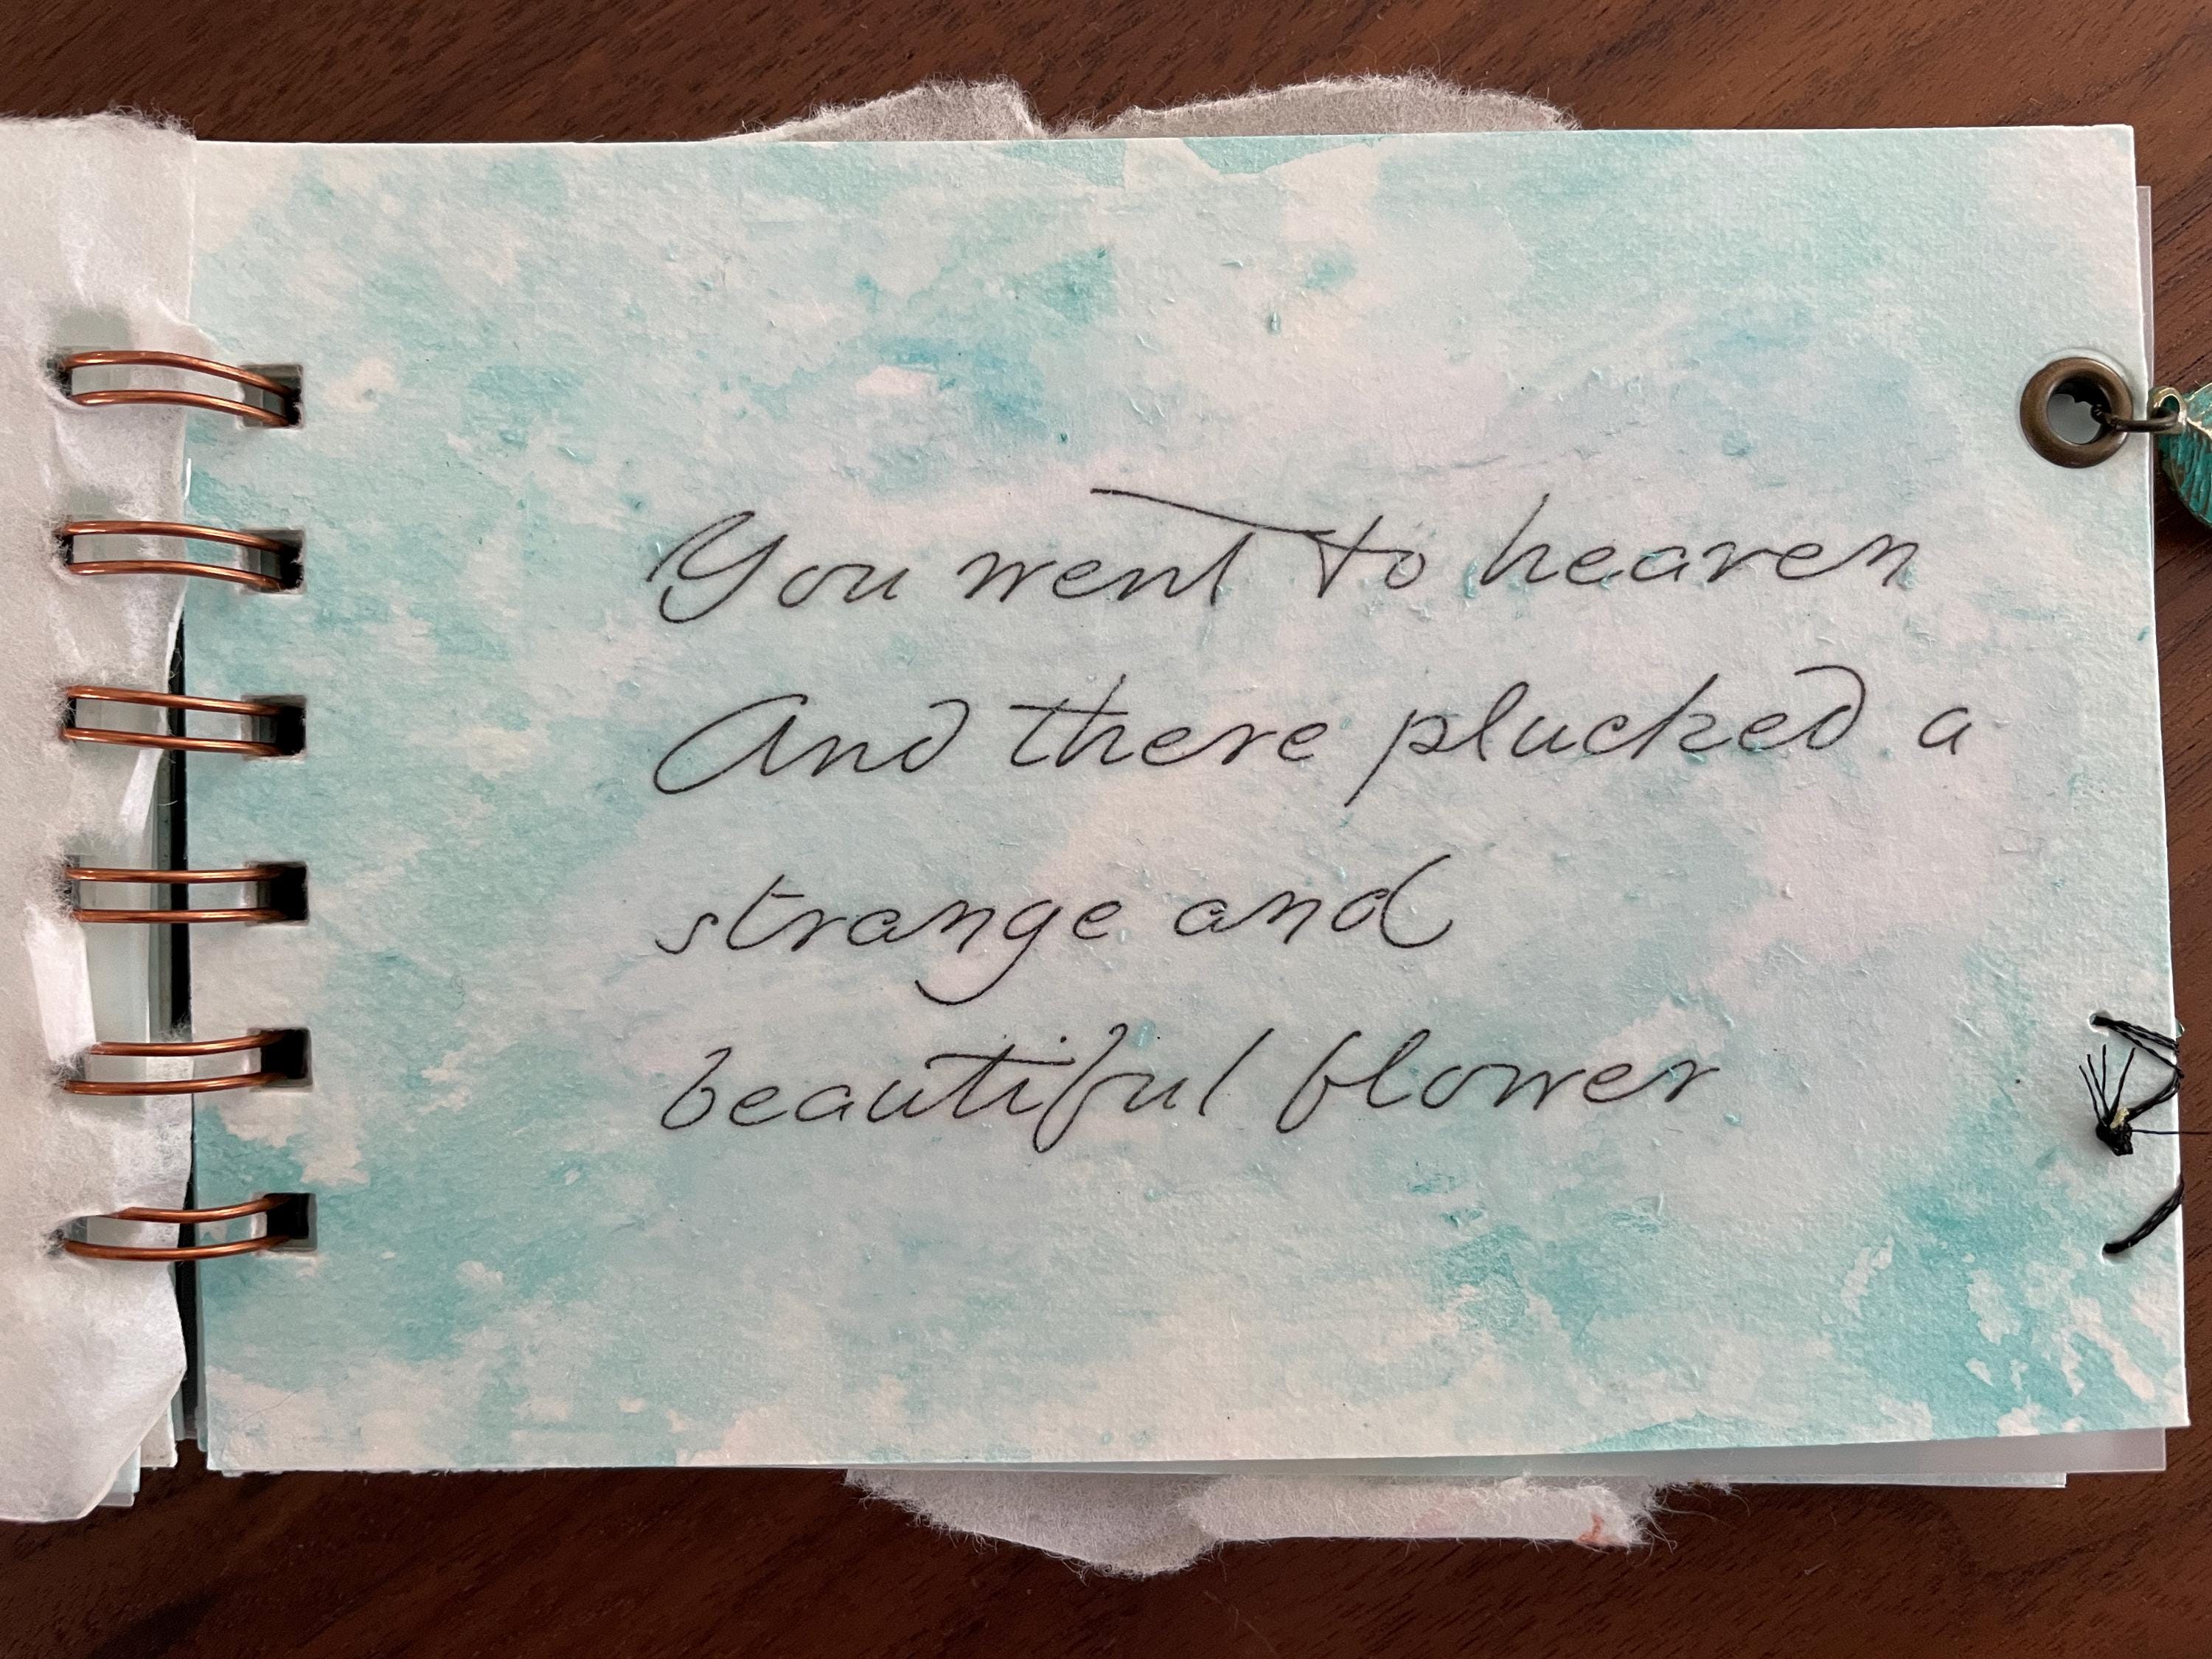 You went to heaven
And there plucked a
strange and
beautiful flower